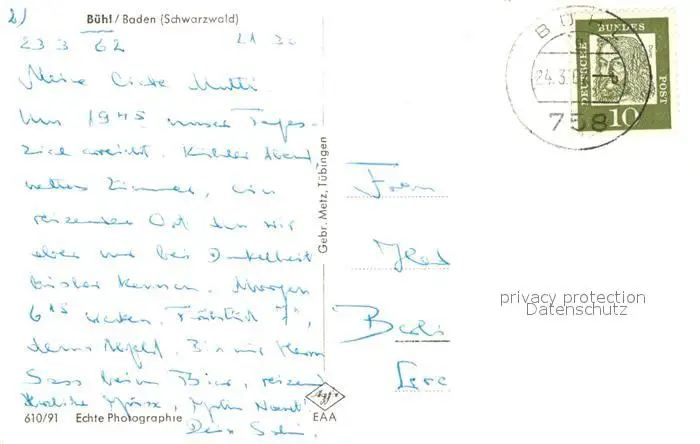 2)
Bühl / Baden (Schwarzwald)
23 3 62 21 30
Meine Liebe Mutti
Um 19 45 unser Tages-
Ziel erreicht. Kühler Abend,
nettes Zimmer, ein
reizender Ort den wir
aber nur bei Dunkelheit
bisher kennen. Morgen
6 15 wecken, Frühstück 7,
dann Abfahrt. Bin mit Herrn
Sass beim Bier, reizend
Herzliche Grüsse,
Dein
610/91 Echte Photographie
EAA
Gebr. Metz, Tübingen
BÜHL
24.3.6
758
DEUTSCHE BUNDES POST
10
Frau
Berli
privacy protection
Datenschutz